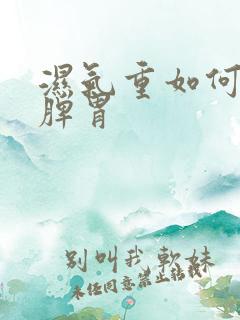 濕氣重如何
脾胃
别叫我軟妹
未经同意禁止转载